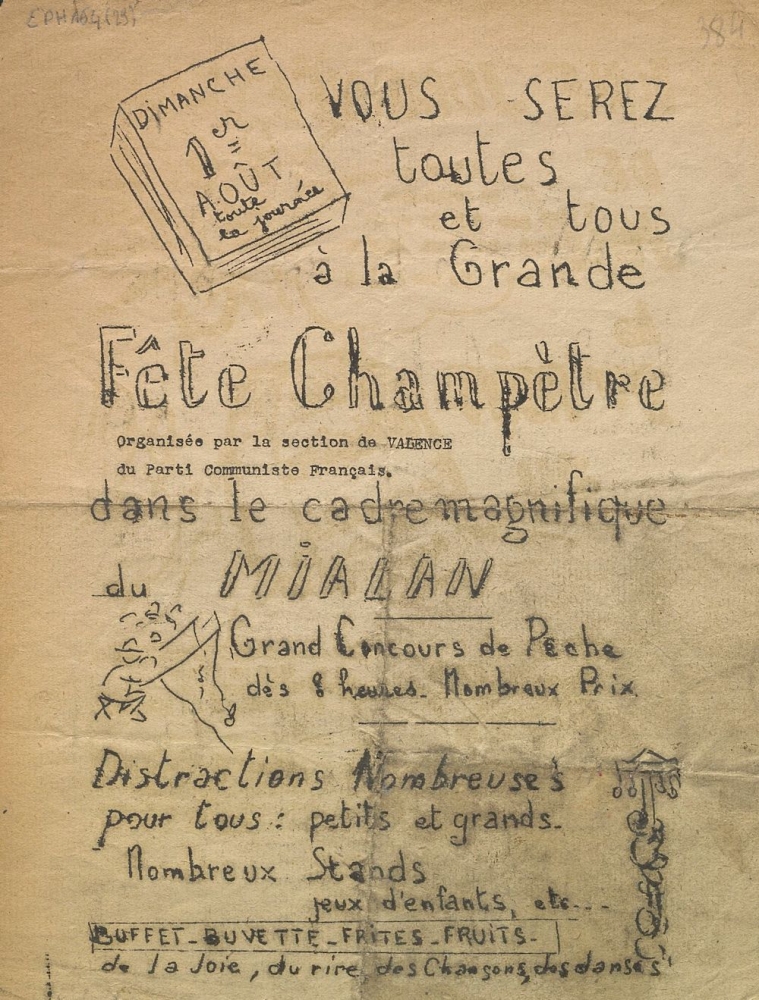 EPH104(29)
384
DIMANCHE
1er
AOÛT
toute
la journée
VOUS SEREZ
toutes
et tous
à la Grande
Fête Champètre
Organisée par la section de VALENCE
du Parti Communiste Français.
dans le cadre magnifique
du MIALAN
Grand Concours de Pêche
dès 8 heures. Nombreux Prix.
Distractions Nombreuses
pour tous : petits et grands.
Nombreux Stands
jeux d'enfants, etc...
BUFFET - BUVETTE - FRITES - FRUITS -
de la Joie, du rire, des Chansons, des danses